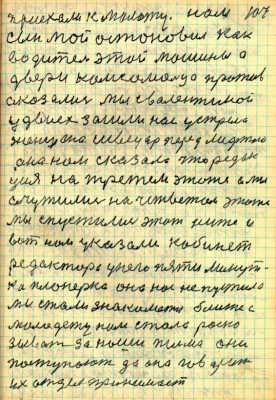 приехали к молоту. нам 107
свли мой остоновил как
водител этой мошины а
двери комсомолца против
сказали мы свалентиной
у двоих зашли нас устрела
женщена швейцар перед лифтом
она нам сказала што редак
ция на третем этоже а мы
очутили на четвтом этоже
мы спустили этот ниже и
вот нам указали кобинет
редактора унего пяти минут-
ка планерка она нас непустила
мы стали знакомит ближе с
молодежу нам стала раско
зыват за наши писма они
поступают да она говорит
их отдел принимает